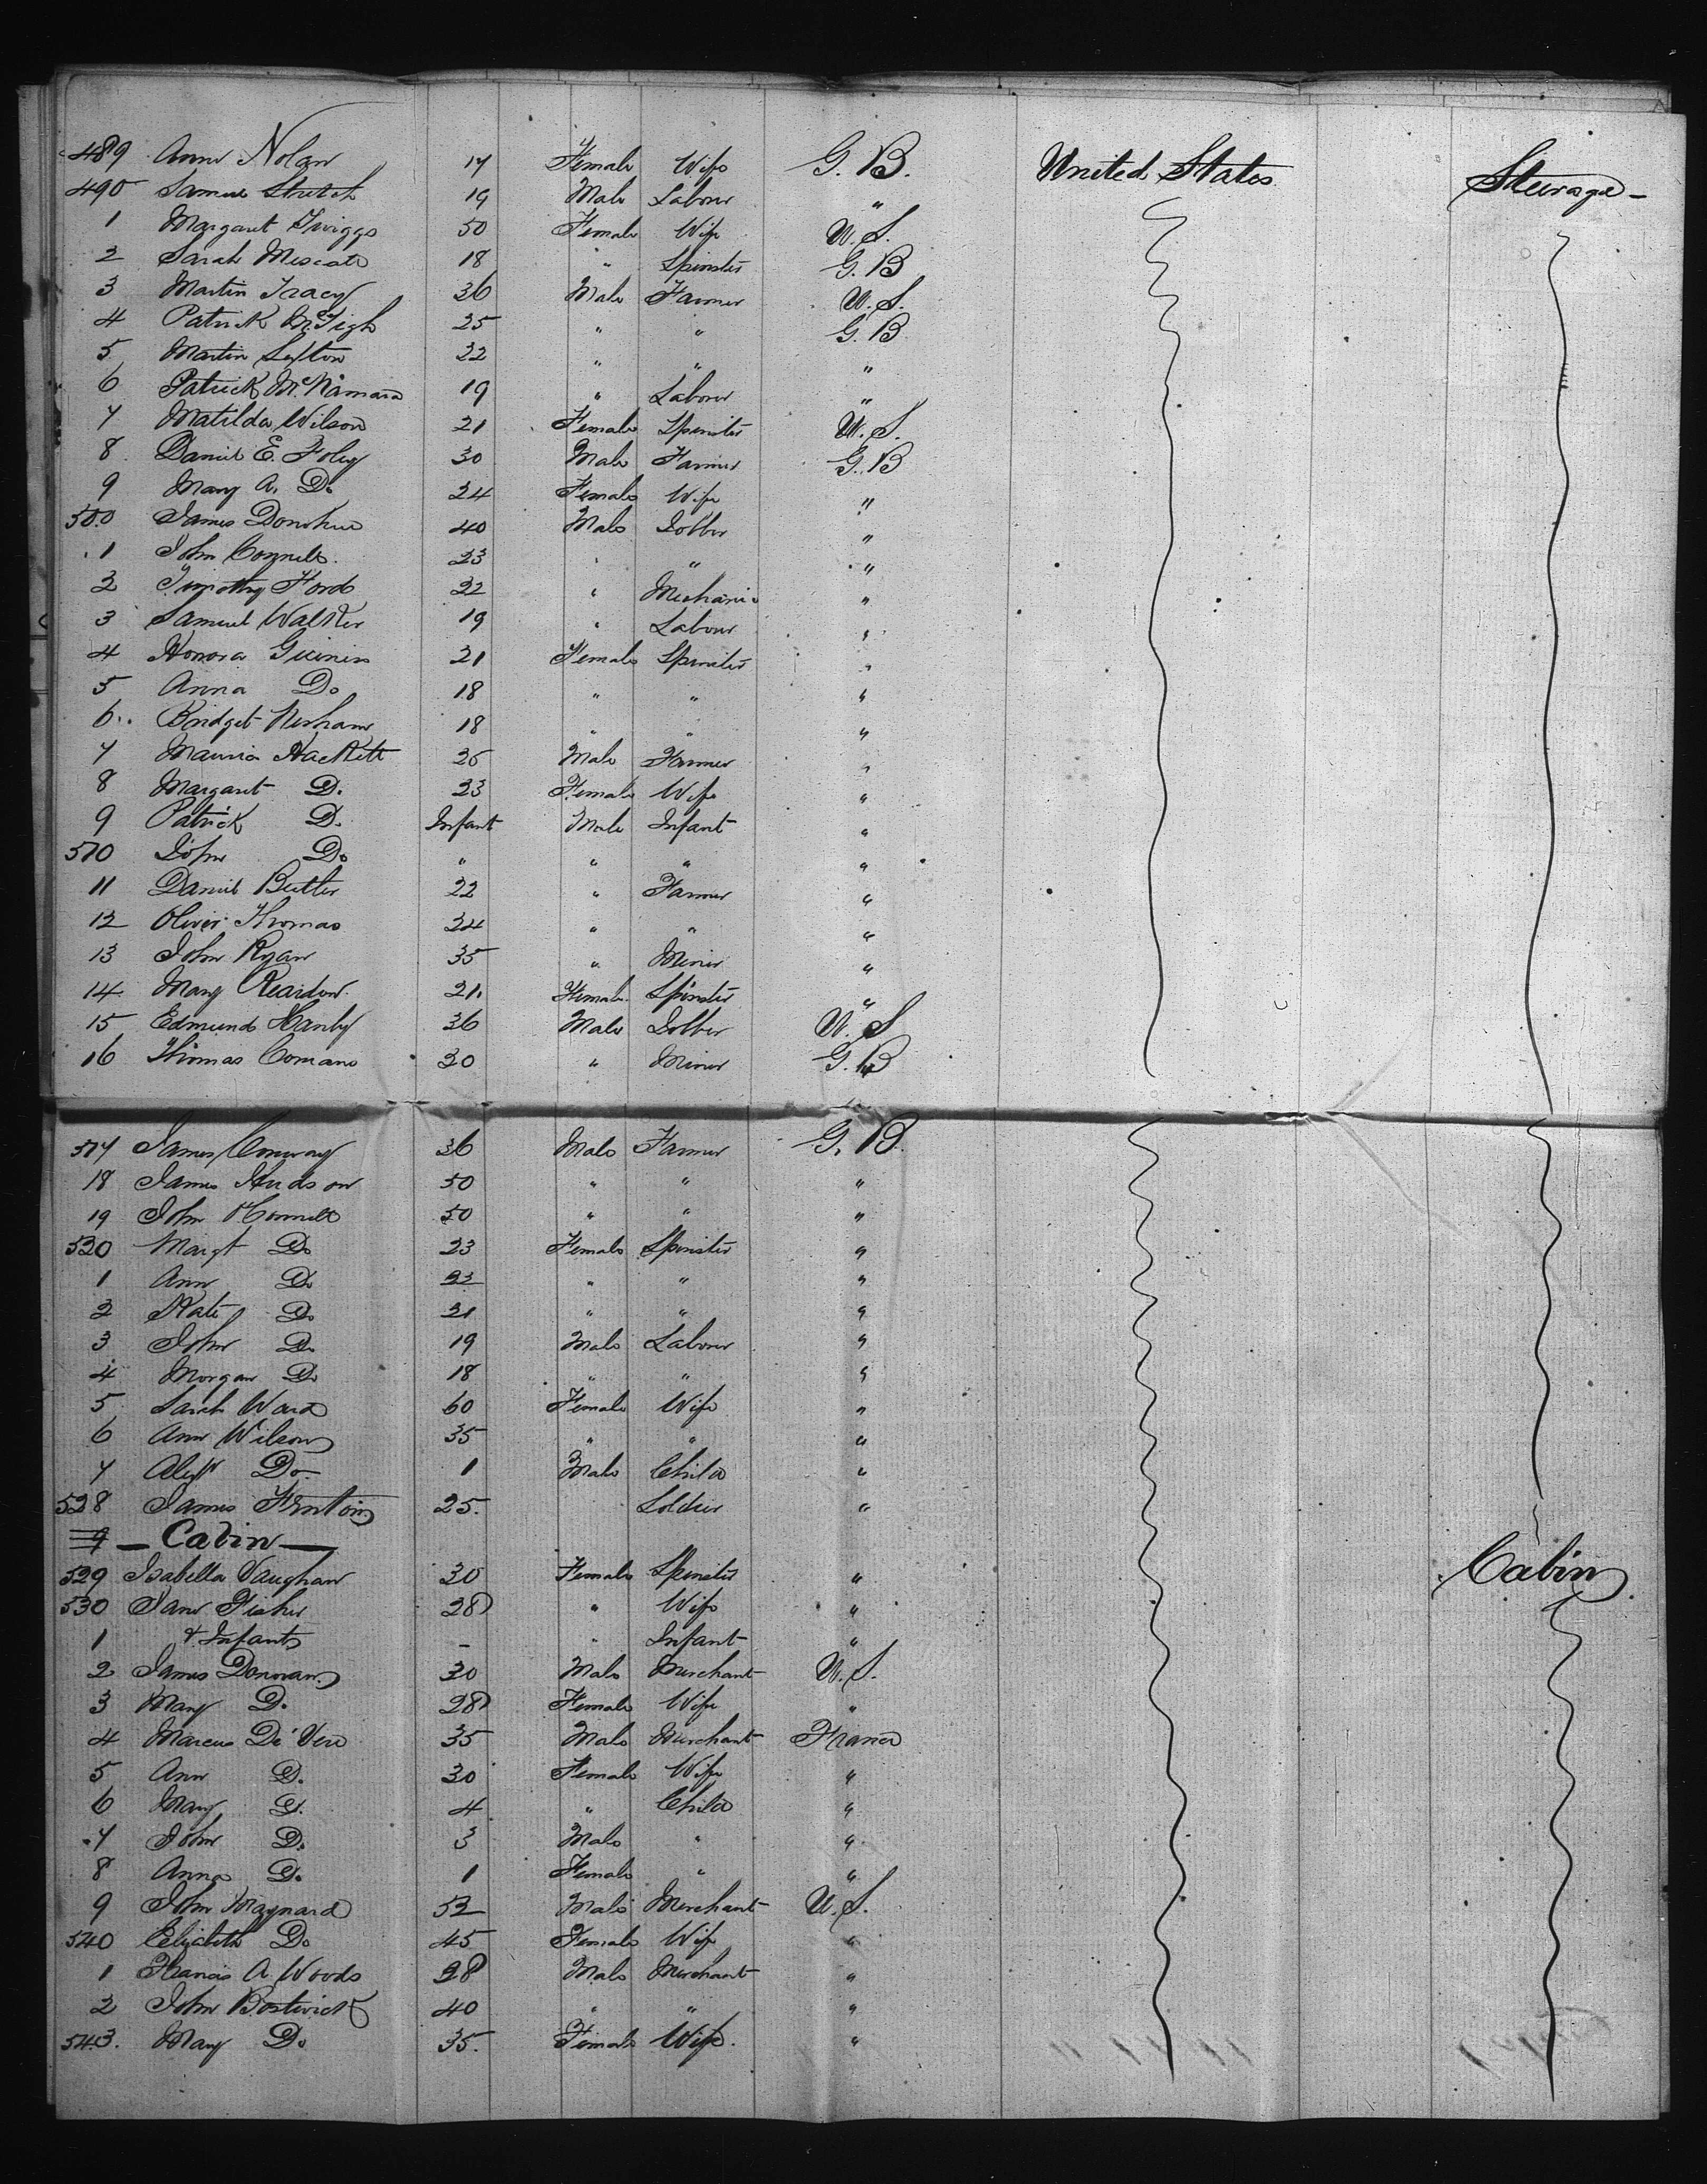 489 Ann Nolan 17 Female Wife G. B. United States Steerage
490 Samuel Stretch 19 Male Laborer "
1 Margaret Twiggs 50 Female Wife U. S.
2 Sarah 18 " Spinster G. B
3 Martin Tracey 36 Male Farmer U. S.
4 Patrick McTigh 25 " " G. B
5 Martin Lefton 22 " " "
6 Patrick McNamara 19 " Laborer "
7 Matilda Wilson 21 Female Spinster U. S.
8 Daniel E. Foley 30 Male Farmer G. B
9 Mary A. Do 24 Female Wife "
500 James Donohue 40 Male Jobber "
1 John Connell 23 " " "
2 Timothy Ford 22 " Mechanic "
3 Samuel Walker 19 " Labour "
4 Honora 21 Female Spinster "
5 Anna Do 18 " " "
6 Bridget 18 " " "
7 Maurice Hackett 25 Male Farmer "
8 Margaret Do 23 Female Wife "
9 Patrick Do Infant Male Infant "
510 John Do " " " "
11 Daniel Butler 22 " Farmer "
12 Oliver Thomas 24 " " "
13 John Ryan 35 " Miner "
14 Mary Reardon 21 Female Spinster "
15 Edmund Hanly 36 Male Jobber U. S
16 Thomas Comans 30 " Miner G. B
517 James Conway 36 Male Farmer G. B.
18 James Hudson 50 " " "
19 John O'Connell 50 " " "
520 Margt Do 23 Female Spinster "
1 Ann Do 22 " " "
2 Kate Do 21 " " "
3 John Do 19 Male Laborer "
4 Morgan Do 18 " " "
5 Sarah Ward 60 Female Wife "
6 Ann Wilson 35 " " "
7 Alexr Do 1 Male Child "
528 James Fenton 25. Soldier "
9 — Cabin — Cabin
529 Isabella Vaughan 30 Female Spinster "
530 Jane Fisher 28 " Wife "
1 & Infant – " Infant "
2 James Donovan 30 Male Merchant U. S.
3 Mary Do 28 Female Wife "
4 Marcus De Vere 35 Male Merchant France
5 Ann Do 30 Female Wife "
6 Mary Do 4 " Child "
7 John Do 3 Male " "
8 Anna Do 1 Female " "
9 John Maynard 52 Male Merchant U. S.
540 Elizabeth Do 45 Female Wife "
1 Francis A. Woods 28 Male Merchant "
2 John Bostwick 40 " " "
543. Mary Do 35. Female Wife. "